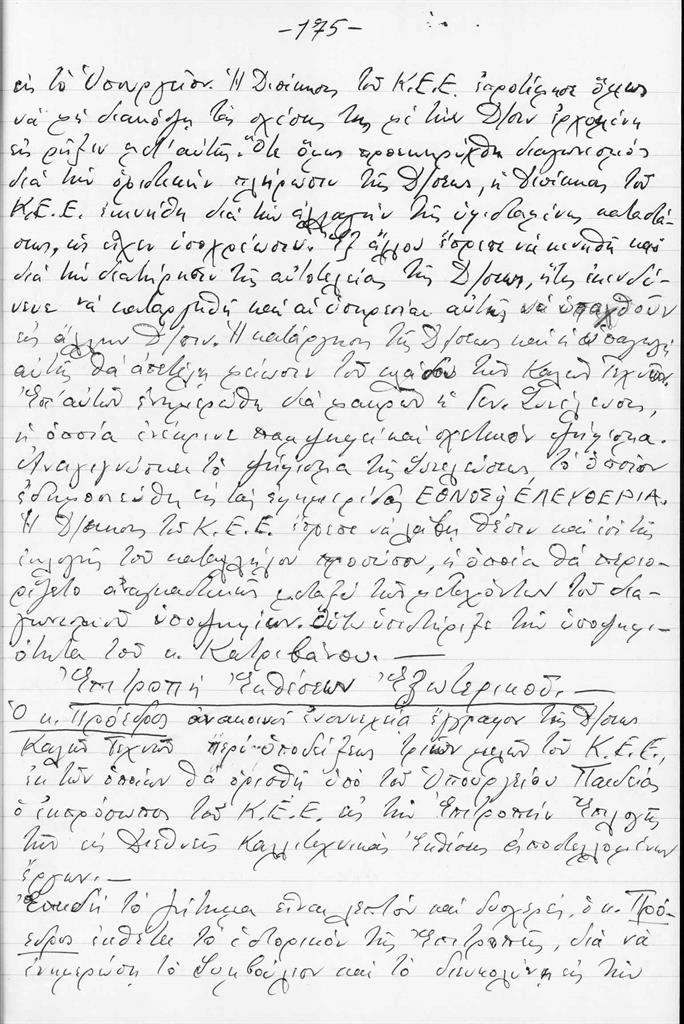 -175-
εἰς τὸ Ὑπουργεῖον. Ἡ Διοίκησις τοῦ Κ.Ε.Ε. ἐπροτίμησε ὅμως
νὰ μὴ διακόψῃ τὰς σχέσεις της μὲ τὴν Δ/σιν ἐρχομένη
εἰς ρῆξιν μετ' αὐτῆς. Ὅτε ὅμως προεκηρύχθη διαγωνισμὸς
διὰ τὴν ὁριστικὴν πλήρωσιν τῆς Δ/σεως, ἡ Διοίκησις τοῦ
Κ.Ε.Ε. ἐκινήθη διὰ τὴν ἀλλαγὴν τῆς ὑφισταμένης καταστά-
σεως, ὡς εἶχεν ὑποχρέωσιν. Ἐξ ἄλλου ἔπρεπε νὰ κινηθῇ καὶ
διὰ τὴν διατήρησιν τῆς αὐτοτελείας τῆς Δ/σεως, ἥτις ἐκινδύ-
νευε νὰ καταργηθῇ καὶ αἱ ὑπηρεσίαι αὐτῆς νὰ ὑπαχθοῦν
εἰς ἄλλην Δ/σιν. Ἡ κατάργησις τῆς Δ/σεως καὶ ἡ ὑπαγωγὴ
αὐτῆς θὰ ἀπετέλει μείωσιν τοῦ κλάδου τῶν Καλῶν Τεχνῶν.
Ἐπ' αὐτῶν ἐνημερώθη διὰ μακρῶν ἡ Γεν. Συνέλευσις,
ἡ ὁποία ἐνέκρινε παμψηφεὶ καὶ σχετικὸν ψήφισμα.
Ἀναγιγνώσκει τὸ ψήφισμα τῆς Συνελεύσεως, τὸ ὁποῖον
ἐδημοσιεύθη εἰς τὰς ἐφημερίδας ΕΘΝΟΣ ἢ ΕΛΕΥΘΕΡΙΑ.
Ἡ Διοίκησις τοῦ Κ.Ε.Ε. ἔπρεπε νὰ λάβῃ θέσιν καὶ ἐπὶ τῆς
ἐκλογῆς τοῦ καταλλήλου προσώπου, ἡ ὁποία θὰ περιο-
ρίζετο ἀναγκαστικῶς μεταξὺ τῶν μετεχόντων τοῦ δια-
γωνισμοῦ ὑποψηφίων. Οὕτω ὑπεστήριξε τὴν ὑποψηφι-
ότητα τοῦ κ. Κατριβάνου. —
Ἐπιτροπὴ Ἐκθέσεων Ἐξωτερικοῦ. —
Ὁ κ. Πρόεδρος ἀνακοινοῖ ἐν συνεχείᾳ ἔγγραφον τῆς Δ/σεως
Καλῶν Τεχνῶν περὶ ὑποδείξεως τριῶν μελῶν τοῦ Κ.Ε.Ε,
ἐκ τῶν ὁποίων θὰ ὁρισθῇ ὑπὸ τοῦ Ὑπουργείου Παιδείας
ὁ ἐκπρόσωπος τοῦ Κ.Ε.Ε εἰς τὴν Ἐπιτροπὴν Ἐπιλογῆς
τῶν εἰς Διεθνεῖς Καλλιτεχνικὰς Ἐκθέσεις ἀποστελλομένων
ἔργων. —
Ἐπειδὴ τὸ ζήτημα εἶναι λεπτὸν καὶ δυσχερές, ὁ κ. Πρό-
εδρος ἐκθέτει τὸ ἱστορικὸν τῆς Ἐπιτροπῆς, διὰ νὰ
ἐνημερώσῃ τὸ Συμβούλιον καὶ τὸ διευκολύνῃ εἰς τὴν